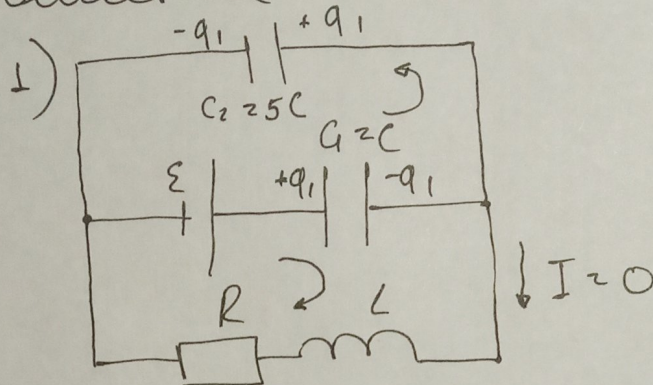 1)
-q₁ +q₁
C₂ = 5C
C₁ = C
ε +q₁ -q₁
I = 0
R L